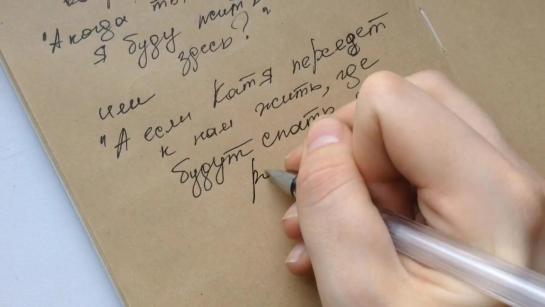 "А когда ты,
я буду жить
здесь?"
или
"А если Катя переедет
к нам жить, где
будут спать